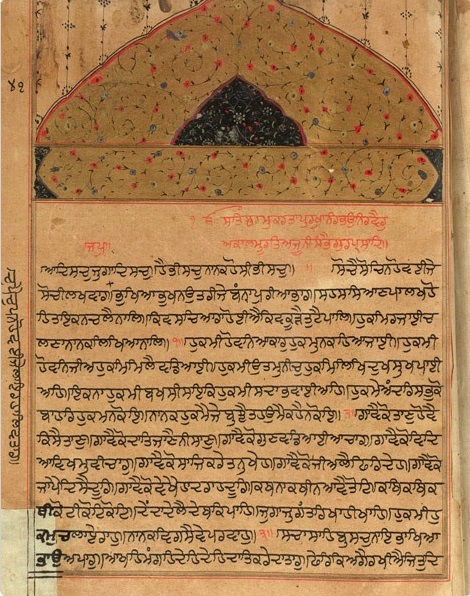 ੧ਓ ਸਤਿਨਾਮੁਕਰਤਾਪੁਰਖੁਨਿਰਭਉਨਿਰਵੈਰੁ
ਅਕਾਲਮੂਰਤਿਅਜੂਨੀਸੈਭੰਗੁਰਪ੍ਰਸਾਦਿ॥
ਜਪੁ॥
ਆਦਿਸਚੁਜੁਗਾਦਿਸਚੁ॥ਹੈਭੀਸਚੁਨਾਨਕਹੋਸੀਭੀਸਚੁ॥ ॥ਸੋਚੈਸੋਚਿਨਹੋਵਈਜੇ
ਸੋਚੀਲਖਵਾਰ॥ਭੁਖਿਆਭੁਖਨਉਤਰੀਜੇਬੰਨਾਪੁਰੀਆਭਾਰ॥ਸਹਸਸਿਆਣਪਾਲਖਹੋ
ਹਿਤਇਕਨਚਲੈਨਾਲਿ॥ਕਿਵਸਚਿਆਰਾਹੋਈਐਕਿਵਕੂੜੈਤੁਟੈਪਾਲਿ॥ਹੁਕਮਿਰਜਾਈਚ
ਲਣਾਨਾਨਕਲਿਖਿਆਨਾਲਿ॥੧॥ਹੁਕਮੀਹੋਵਨਿਆਕਾਰਹੁਕਮੁਨਕਹਿਆਜਾਈ॥ਹੁਕਮੀ
ਹੋਵਨਿਜੀਅਹੁਕਮਿਮਿਲੈਵਡਿਆਈ॥ਹੁਕਮੀਉਤਮੁਨੀਚੁਹੁਕਮਿਲਿਖਿਦੁਖਸੁਖਪਾਈ
ਅਹਿ॥ਇਕਨਾਹੁਕਮੀਬਖਸੀਸਇਕਿਹੁਕਮੀਸਦਾਭਵਾਈਅਹਿ॥ਹੁਕਮੈਅੰਦਰਿਸਭੁਕੋ
ਬਾਹਰਿਹੁਕਮਨਕੋਇ॥ਨਾਨਕਹੁਕਮੈਜੇਬੁਝੈਤਹਉਮੈਕਹੈਨਕੋਇ॥੨॥ਗਾਵੈਕੋਤਾਣੁਹੋਵੈ
ਕਿਸੈਤਾਣੁ॥ਗਾਵੈਕੋਦਾਤਿਜਾਣੈਨੀਸਾਣੁ॥ਗਾਵੈਕੋਗੁਣਵਡਿਆਈਆਚਾਰ॥ਗਾਵੈਕੋਵਿਦਿ
ਆਵਿਖਮੁਵੀਚਾਰੁ॥ਗਾਵੈਕੋਸਾਜਿਕਰੇਤਨੁਖੇਹ॥ਗਾਵੈਕੋਜੀਅਲੈਫਿਰਿਦੇਹ॥ਗਾਵੈਕੋ
ਜਾਪੈਦਿਸੈਦੂਰਿ॥ਗਾਵੈਕੋਵੇਖੈਹਾਦਰਾਹਦੂਰਿ॥ਕਥਨਾਕਥੀਨਆਵੈਤੋਟਿ॥ਕਥਿਕਥਿਕ
ਥੀਕੋਟੀਕੋਟਿਕੋਟਿ॥ਦੇਂਦਾਦੇਲੈਦੇਥਕਿਪਾਹਿ॥ਜੁਗਾਜੁਗੰਤਰਿਖਾਹੀਖਾਹਿ॥ਹੁਕਮੀਹੁ
ਕਮੁਚਲਾਏਰਾਹੁ॥ਨਾਨਕਵਿਗਸੈਵੇਪਰਵਾਹੁ॥੩॥ਸਾਚਾਸਾਹਿਬੁਸਾਚੁਨਾਇਭਾਖਿਆ
ਭਾਉਅਪਾਰੁ॥ਆਖਹਿਮੰਗਹਿਦੇਹਿਦੇਹਿਦਾਤਿਕਰੇਦਾਤਾਰੁ॥ਫੇਰਿਕਿਅਗੈਰਖੀਐਜਿਤੁਦਿ